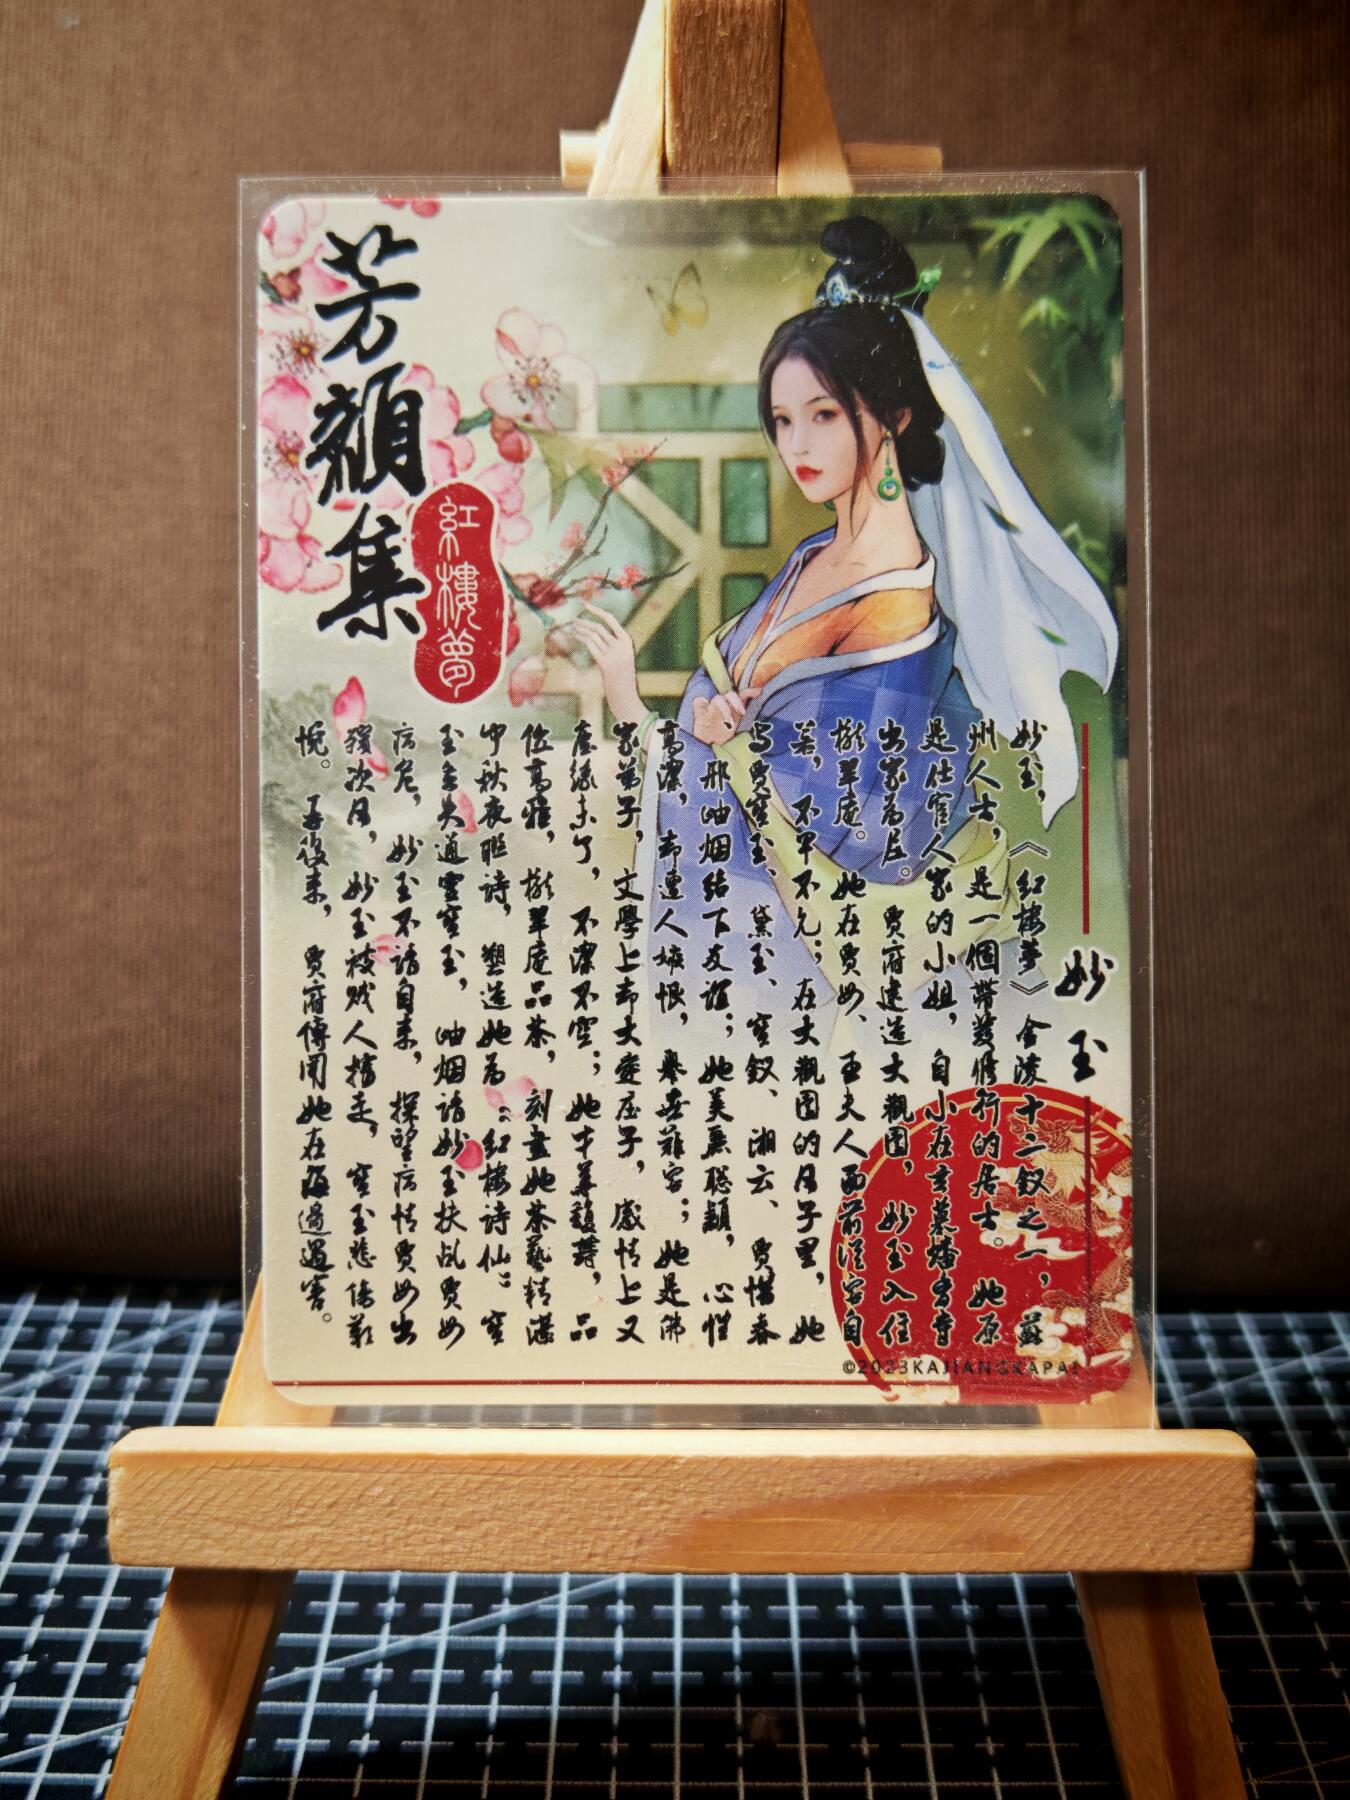 芳顏集
紅樓夢
妙玉
妙玉，《红樓夢》金陵十二釵之一，蘇
州人士，是一個帶髮修行的居士。她原
是仕宦人家的小姐，自小在玄墓蟠香寺
出家為尼。賈府建造大觀園，妙玉入住
櫳翠庵。她在賈母、王夫人面前從容自
若，不卑不亢；在大觀園的日子里，她
与賈寶玉、黛玉、寶釵、湘云、賈惜春
、邢岫烟結下友誼；她美麗聰穎，心性
高潔，却遭人嫉恨，舉世難容；她是佛
家弟子，文學上却大愛莊子，感情上又
塵緣未了，不潔不空；她才華馥，品
位高雅，櫳翠庵品茶，刻畫她茶藝精湛
中秋夜聯詩，塑造她為“红樓詩仙”寶
玉丟失通靈寶玉，岫烟請妙玉扶乩賈母
病危，妙玉不請自来，探望病情賈母出
殯次月，妙玉被賊人擄走，寶玉悲傷難
悅。再後来，賈府傳聞她在海邊遇害。
©2023KAJIANGKAPAI